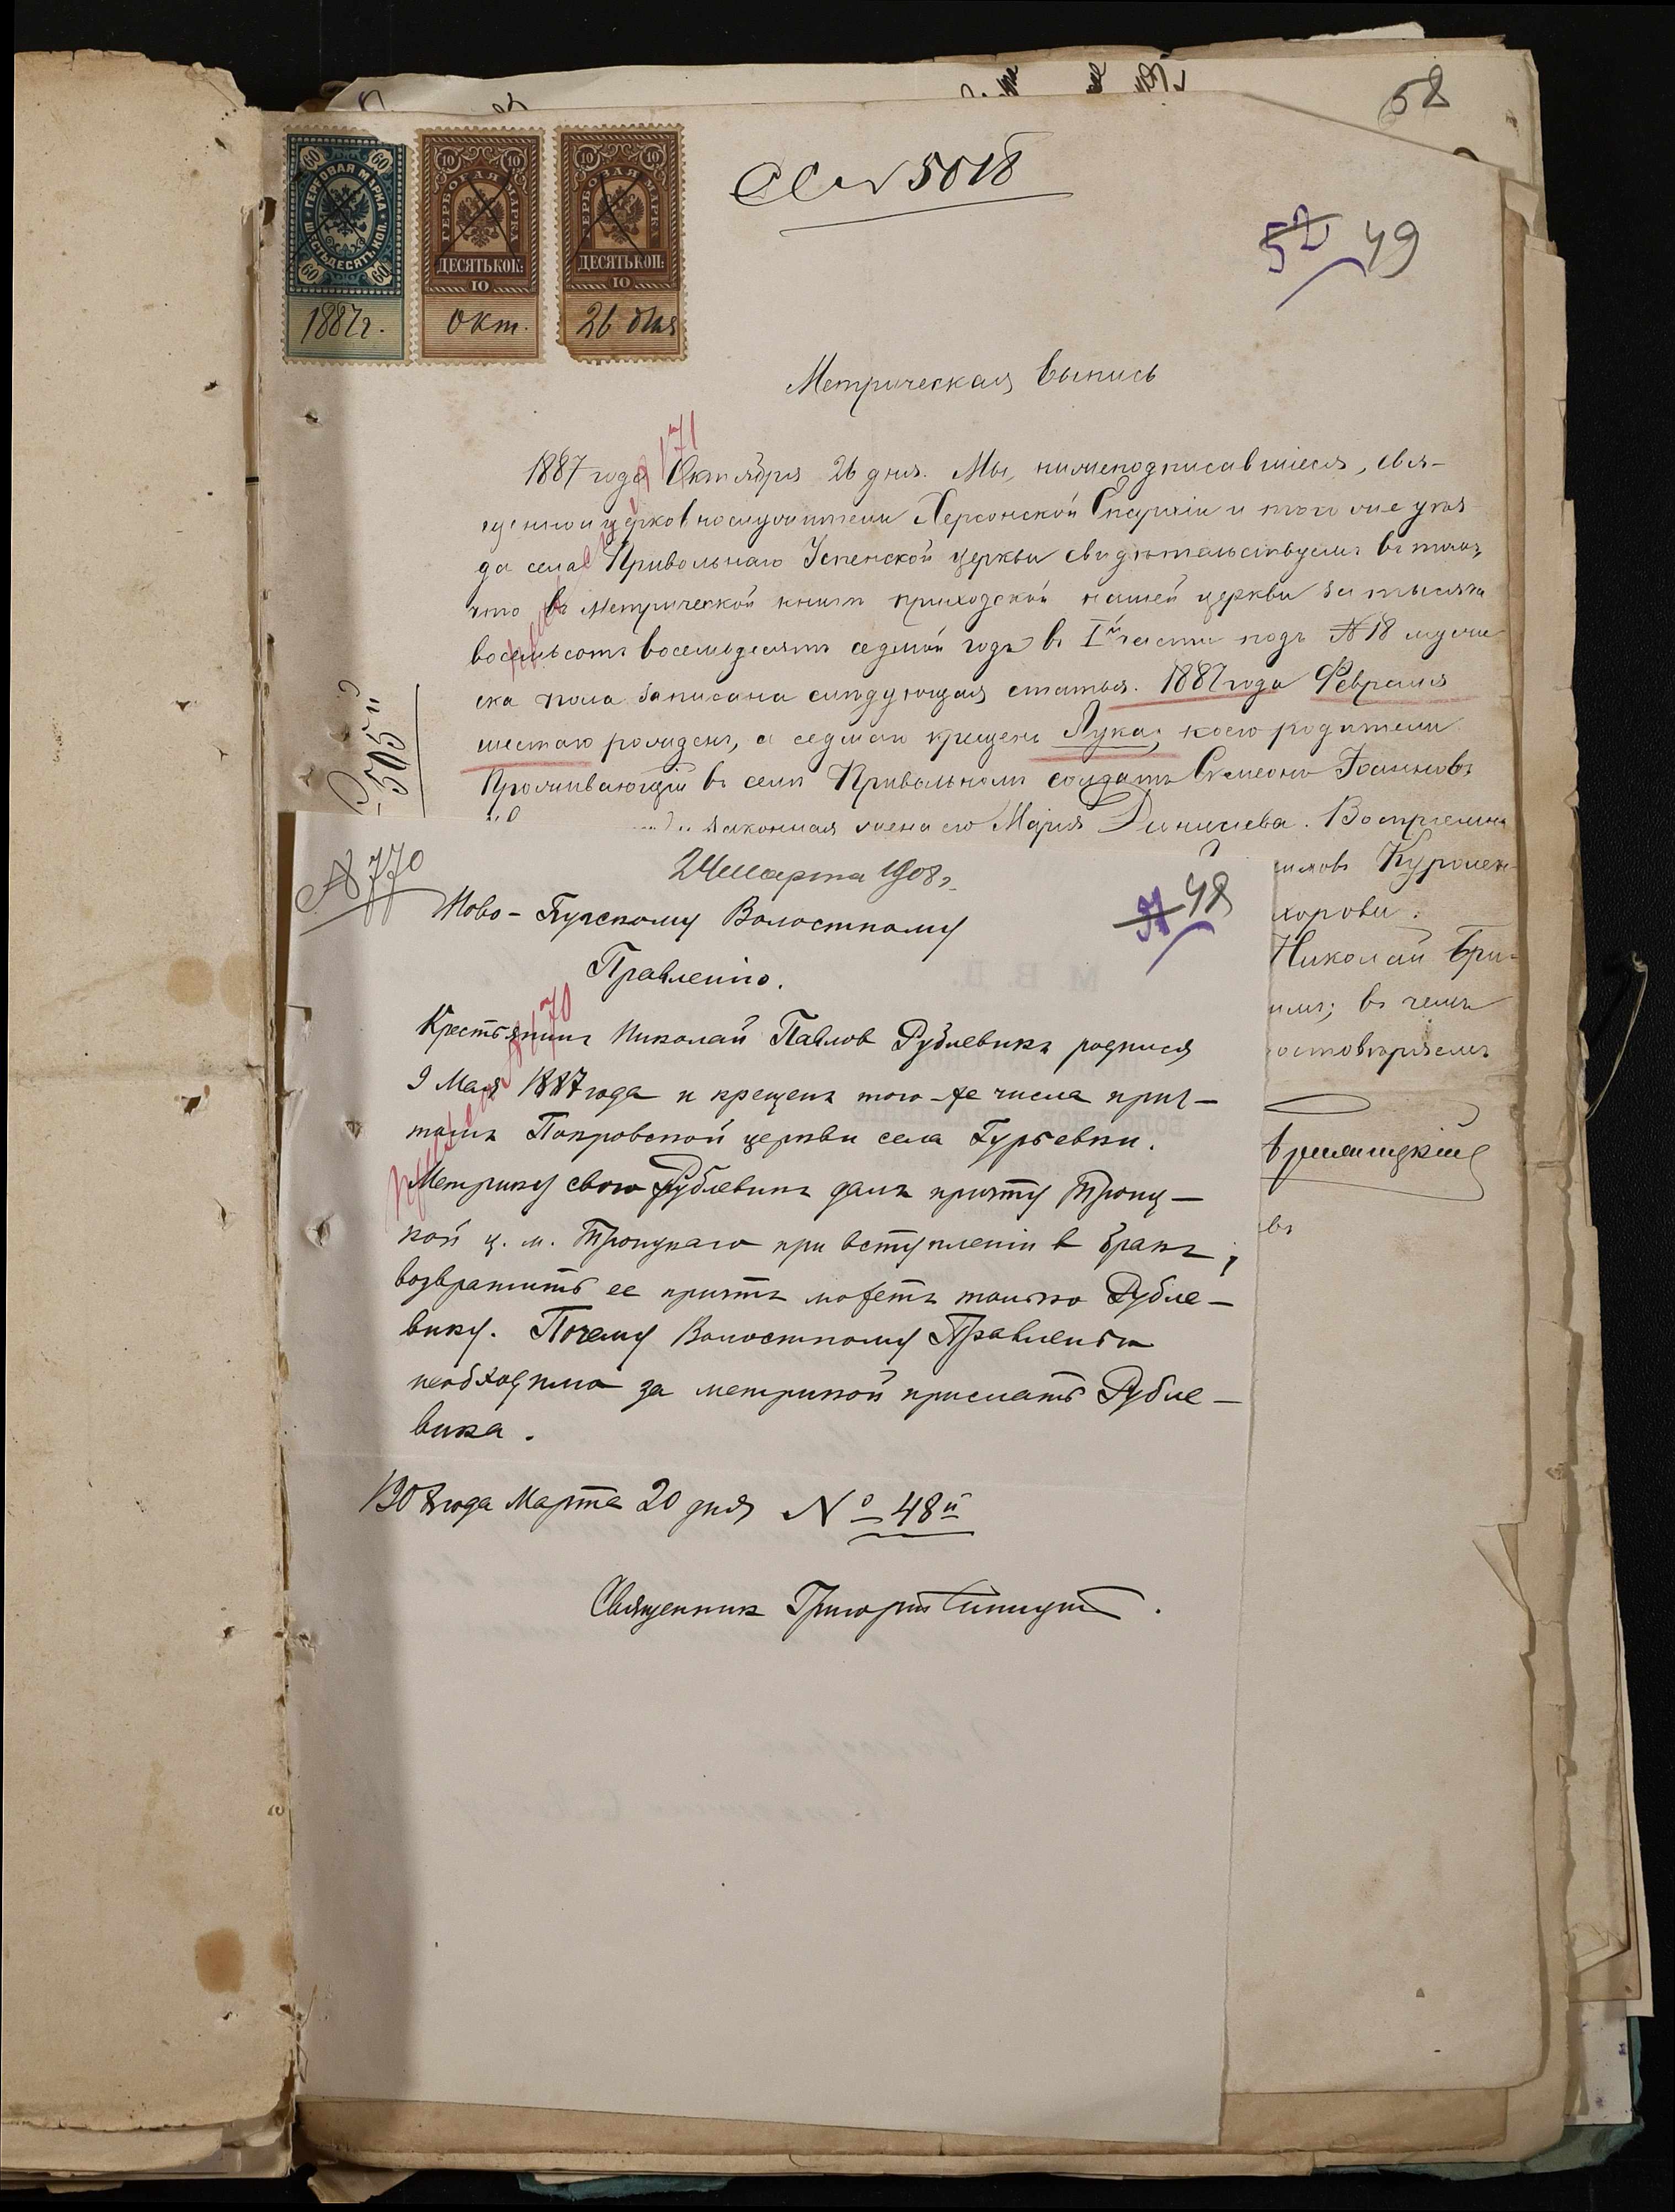 58
60 60
ГЕРБОВАЯ МАРКА
ШЕСТЬДЕСЯТЪ КОП.
60 60
1887 г.
10 10
ГЕРБОВАЯ МАРКА
ДЕСЯТЬ КОП:
10
Окт.
10 10
ГЕРБОВАЯ МАРКА
ДЕСЯТЬ КОП:
10
26 дня
5018
52 49
Метрическая выпись
171
1887 года Октября 26 дня. Мы, нижеподписавшіеся, свя-
щенно и церковнослужители Херсонской Епархіи и того же уѣз
да села Привольнаго Успенской церкви свидѣтельствуемъ въ томъ,
что въ Метрической книгѣ приходской нашей церкви за тысяча
восемьсотъ восемьдесятъ седмой годъ въ Iй части подъ № 18 мужеска
ска пола записана слѣдующая статья. 1887 года Февраля
шестаго рожденъ, а седмаго крещенъ Лука; коего родители
Проживающій въ селѣ Привольномъ солдатъ Симеонъ Іоанновъ
законная жена его Марія Діонисіева. Воспріемни
505
№ 770
24 Марта 1908 г.
Ново-Бугскому Волостному
48
Правленію.
170
Крестьянинъ Николай Павлов Рублевикъ родился
9 Мая 1887 года и крещенъ того-же числа прич-
томъ Покровской церкви села Гурьевки.
Метрику свою Рублевикъ далъ причту Троиц-
кой ц. м. Троицкаго при вступленіи в бракъ,
возвратить ее причтъ можетъ только Рубле-
вику. Почему Волостному Правленію
необходимо за метрикой прислать Рубле-
вика.
1908 года Марта 20 дня № 48й
Священникъ Григорій
Николай Гри-
въ чемъ
въ